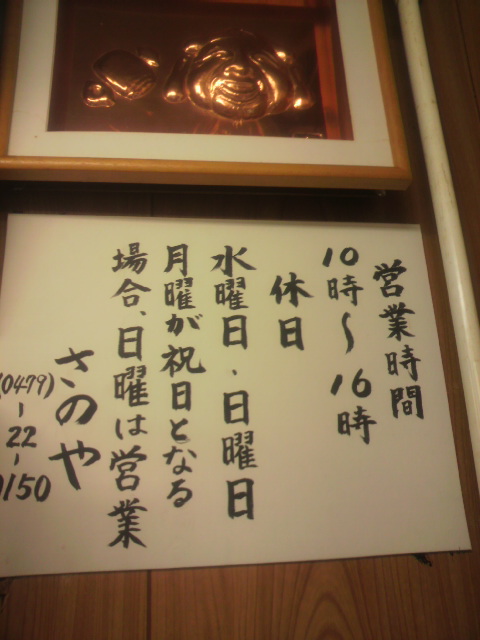 営業時間
10時〜16時
休日
水曜日・日曜日
月曜が祝日となる
場合、日曜は営業
さのや
(0479)-22-0150